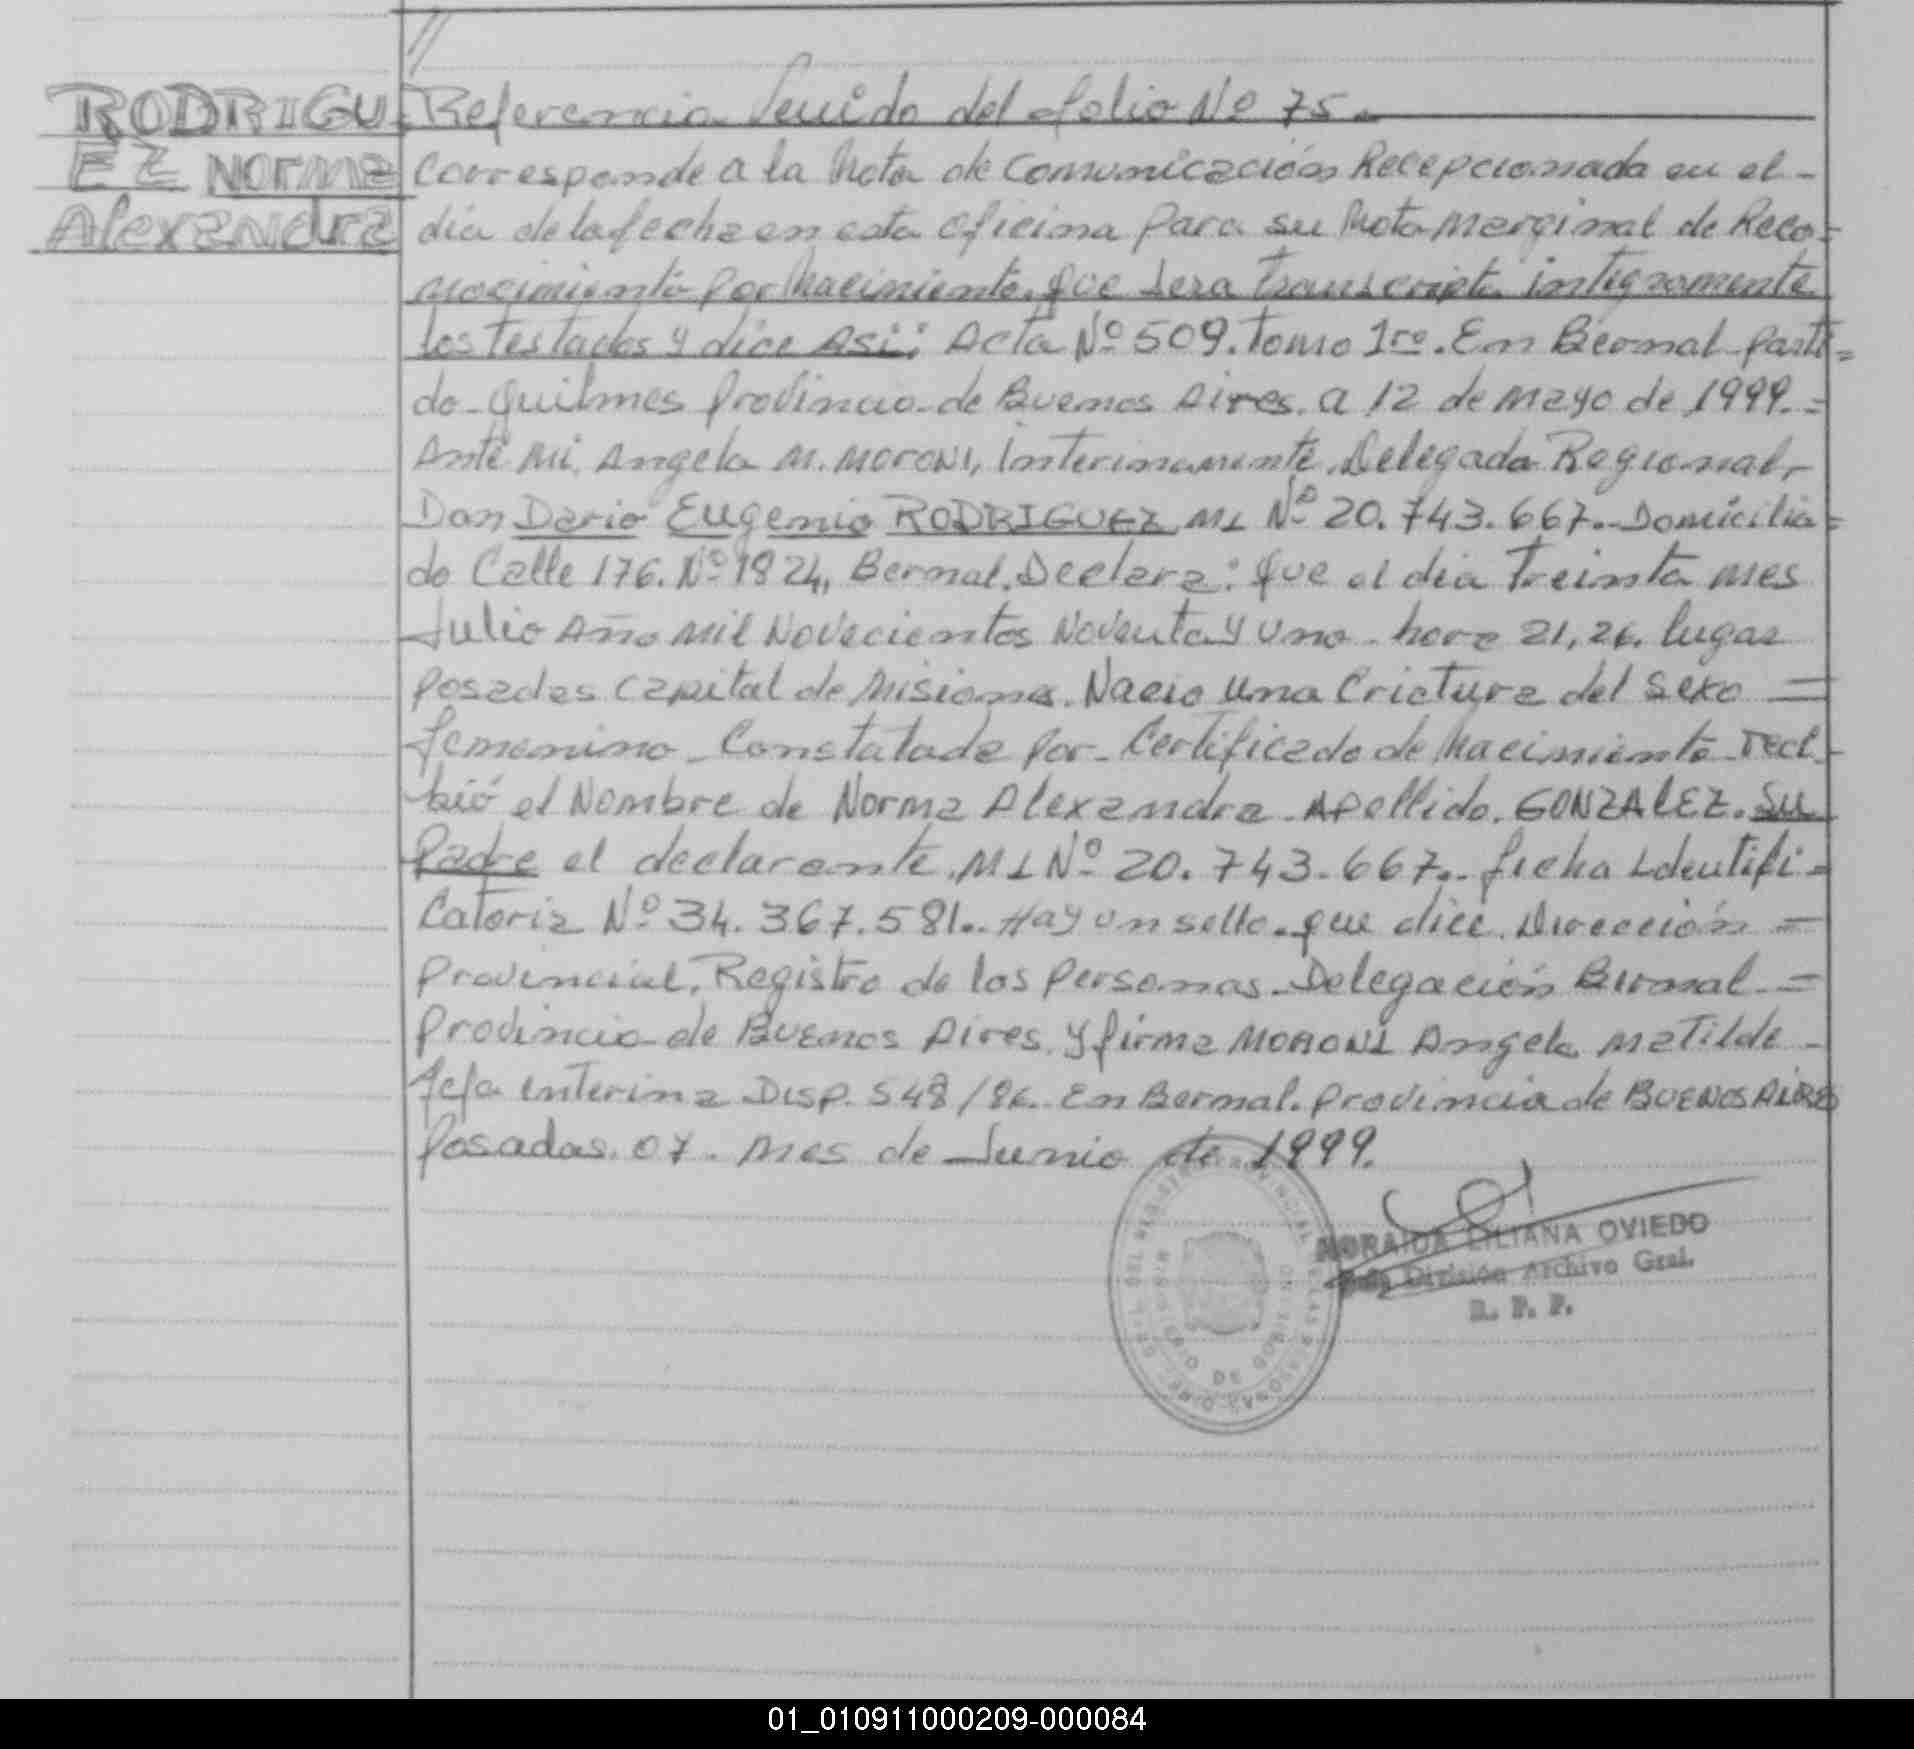 RODRIGU
EZ Norma
Alexandra
Referencia Venido del folio Nº 75.
Corresponde a la Nota de Comunicación Recepcionada en el -
día de la fecha en esta oficina para su Nota Marginal de Reco=
nocimiento por Nacimiento. Que sera transcripto integramente
los testados y dice Asi: Acta Nº 509. Tomo 1ro. En Bernal parti=
do Quilmes Provincia de Buenos Aires. a 12 de Mayo de 1999.=
Ante Mi. Angela M. MORONI, Interinamente Delegada Regional,
Don Dario Eugenio RODRIGUEZ MI Nº 20.743.667.- Domicilia=
do Calle 176. Nº 1824, Bernal. Declara: Que el día Treinta Mes
Julio Año Mil Novecientos Noventa y Uno hora 21,26. lugar
Posadas Capital de Misiones. Nacio una Criatura del Sexo =
femenino - Constatada Por - Certificado de Nacimiento reci-
bió el Nombre de Norma Alexandra Apellido. GONZALEZ. Su
Padre el declarante. MI Nº 20.743.667.- ficha Identifi=
Catoria Nº 34.367.581.. Hay un sello. que dice. Dirección =
Provincial. Registro de las Personas. Delegación Bernal =
Provincia de Buenos Aires. y firma MORONI Angela Matilde -
Jefa interina Disp. 548/86. En Bernal. Provincia de BUENOS AIRES
Posadas. 07. Mes de Junio de 1999.
LILIANA OVIEDO
División Archivo Gral.
R. P. P.
DE
01_010911000209-000084